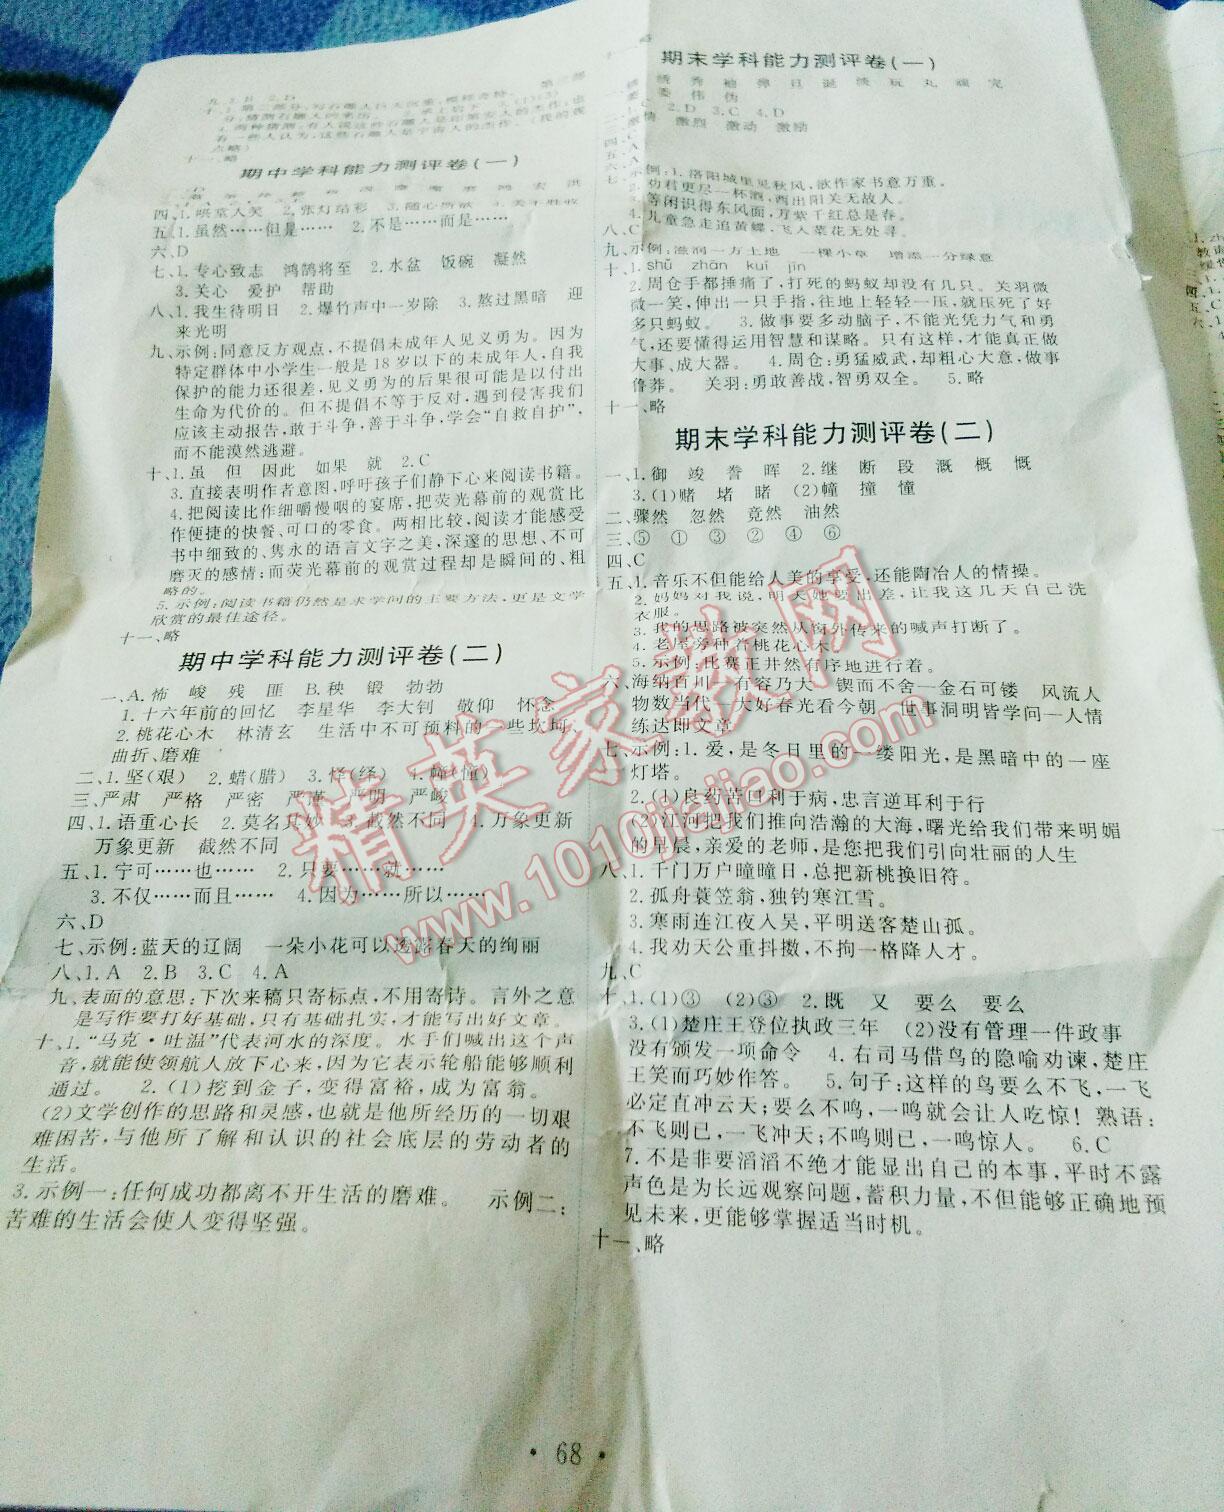 十一、略
期中学科能力测评卷(一)
四、1.哄堂大笑 2.张灯结彩 3.随心所欲
五、1.虽然……但是…… 2.不是……而是……
六、D
七、1.专心致志 鸿鹄将至 2.水盆 饭碗 凝然
3.关心 爱护 帮助
八、1.我生待明日 2.爆竹声中一岁除 3.熬过黑暗 迎
来光明
九、示例:同意反方观点,不提倡未成年人见义勇为。因为
特定群体中小学生一般是18岁以下的未成年人,自我
保护的能力还很差,见义勇为的后果很可能是以付出
生命为代价的。但不提倡不等于反对,遇到侵害我们
应该主动报告,敢于斗争,善于斗争,学会“自救自护”,
而不能漠然逃避。
十、1.虽 但 因此 如果 就 2.C
3.直接表明作者意图,呼吁孩子们静下心来阅读书籍。
4.把阅读比作细嚼慢咽的宴席,把荧光幕前的观赏比
作便捷的快餐、可口的零食。两相比较,阅读才能感受
书中细致的、隽永的语言文字之美,深邃的思想、不可
磨灭的感情;而荧光幕前的观赏过程却是瞬间的、粗
略的。
5.示例:阅读书籍仍然是求学问的主要方法,更是文学
欣赏的最佳途径。
十一、略
期中学科能力测评卷(二)
一、A.怖 峻 残 匪 B.秧 锻 勃勃
1.十六年前的回忆 李星华 李大钊 敬仰 怀念
2.桃花心木 林清玄 生活中不可预料的一些坎坷、
曲折、磨难
二、1.坚(艰) 2.蜡(腊) 3.怿(绎) 4.幢(憧)
三、严肃 严格 严密 严谨 严明 严峻
四、1.语重心长 2.莫名其妙 3.截然不同 4.万象更新
万象更新 截然不同
五、1.宁可……也…… 2.只要……就……
3.不仅……而且…… 4.因为……所以……
六、D
七、示例:蓝天的辽阔 一朵小花可以透露春天的绚丽
八、1.A 2.B 3.C 4.A
九、表面的意思:下次来稿只寄标点,不用寄诗。言外之意
是写作要打好基础,只有基础扎实,才能写出好文章。
十、1.“马克·吐温”代表河水的深度。水手们喊出这个声
音,就能使领航人放下心来,因为它表示轮船能够顺利
通过。 2.(1)挖到金子,变得富裕,成为富翁。
(2)文学创作的思路和灵感,也就是他所经历的一切艰
难困苦,与他所了解和认识的社会底层的劳动者的
生活。
3.示例一:任何成功都离不开生活的磨难。 示例二:
苦难的生活会使人变得坚强。
期末学科能力测评卷(一)
绣 秀 袖 弹 旦 诞 淡 玩 丸 顽 完
委 伟 伪
1.C 2.D 3.C 4.D
激情 激烈 激动 激励
四、A
五、A
六、示例:1.洛阳城里见秋风,欲作家书意万重。
七、2.劝君更尽一杯酒,西出阳关无故人。
3.等闲识得东风面,万紫千红总是春。
4.儿童急走追黄蝶,飞入菜花无处寻。
八、C
九、示例:滋润一方土地 一棵小草 增添一分绿意
十、1.shǔ zhān kuī jīn
2.周仓手都捶痛了,打死的蚂蚁却没有几只。关羽微
微一笑,伸出一只手指,往地上轻轻一压,就压死了好
多只蚂蚁。 3.做事要多动脑子,不能光凭力气和勇
气,还要懂得运用智慧和谋略。只有这样,才能真正做
大事、成大器。 4.周仓:勇猛威武,却粗心大意,做事
鲁莽。 关羽:勇敢善战,智勇双全。 5.略
十一、略
期末学科能力测评卷(二)
一、1.御 竣 誊 晖 2.继 断 段 溉 概 慨
3.(1)赌 堵 睹 (2)幢 撞 憧
二、骤然 忽然 竟然 油然
三、⑤ ① ③ ② ④ ⑥
四、C
五、1.音乐不但能给人美的享受,还能陶冶人的情操。
2.妈妈对我说,明天她要出差,让我这几天自己洗
衣服。
3.我的思路被突然从窗外传来的喊声打断了。
4.老屋旁种着桃花心木。
5.示例:比赛正井然有序地进行着。
六、海纳百川—有容乃大 锲而不舍—金石可镂 风流人
物数当代—大好春光看今朝 世事洞明皆学问—人情
练达即文章
七、示例:1.爱,是冬日里的一缕阳光,是黑暗中的一座
灯塔。
2.(1)良药苦口利于病,忠言逆耳利于行
(2)江河把我们推向浩瀚的大海,曙光给我们带来明媚
的早晨,亲爱的老师,是您把我们引向壮丽的人生
八、1.千门万户曈曈日,总把新桃换旧符。
2.孤舟蓑笠翁,独钓寒江雪。
3.寒雨连江夜入吴,平明送客楚山孤。
4.我劝天公重抖擞,不拘一格降人才。
九、C
十、1.(1)③ (2)③ 2.既 又 要么 要么
3.(1)楚庄王登位执政三年 (2)没有管理一件政事
没有颁发一项命令 4.右司马借鸟的隐喻劝谏,楚庄
王笑而巧妙作答。 5.句子:这样的鸟要么不飞,一飞
必定直冲云天;要么不鸣,一鸣就会让人吃惊! 熟语:
不飞则已,一飞冲天;不鸣则已,一鸣惊人。 6.C
7.不是非要滔滔不绝才能显出自己的本事,平时不露
声色是为长远观察问题,蓄积力量,不但能够正确地预
见未来,更能够掌握适当时机。
十一、略
精英家教网
www.1010jiajiao.com
· 68 ·